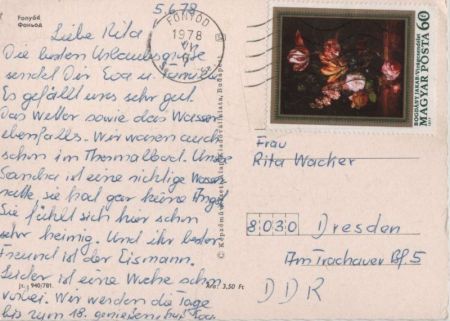 5.6.78
Fonyód
Фоньод
Liebe Rita
Die besten Urlaubsgrüße
sendet Dir Eva u. Familie
Es gefällt uns sehr gut.
Das Wetter sowie das Wasser
ebenfalls. Wir waren auch
schon im Thermalbad. Unsere
Sandra ist eine richtige Wasser
ratte, sie hat gar keine Angst
Sie fühlt sich hier schon
sehr heimig. Und ihr bester
Freund ist der Eismann.
Leider ist eine Woche schon
vorbei. Wir werden die Tage
bis zum 18. genießen
jt.: 940/781.
Ára: 3,50 Ft
FONYÓD
1978
BOGDÁNY JAKAB: Virágcsendélet
MAGYAR POSTA 60
Frau
Rita Wacker
8030 Dresden
Am Trachauer Bf. 5
DDR